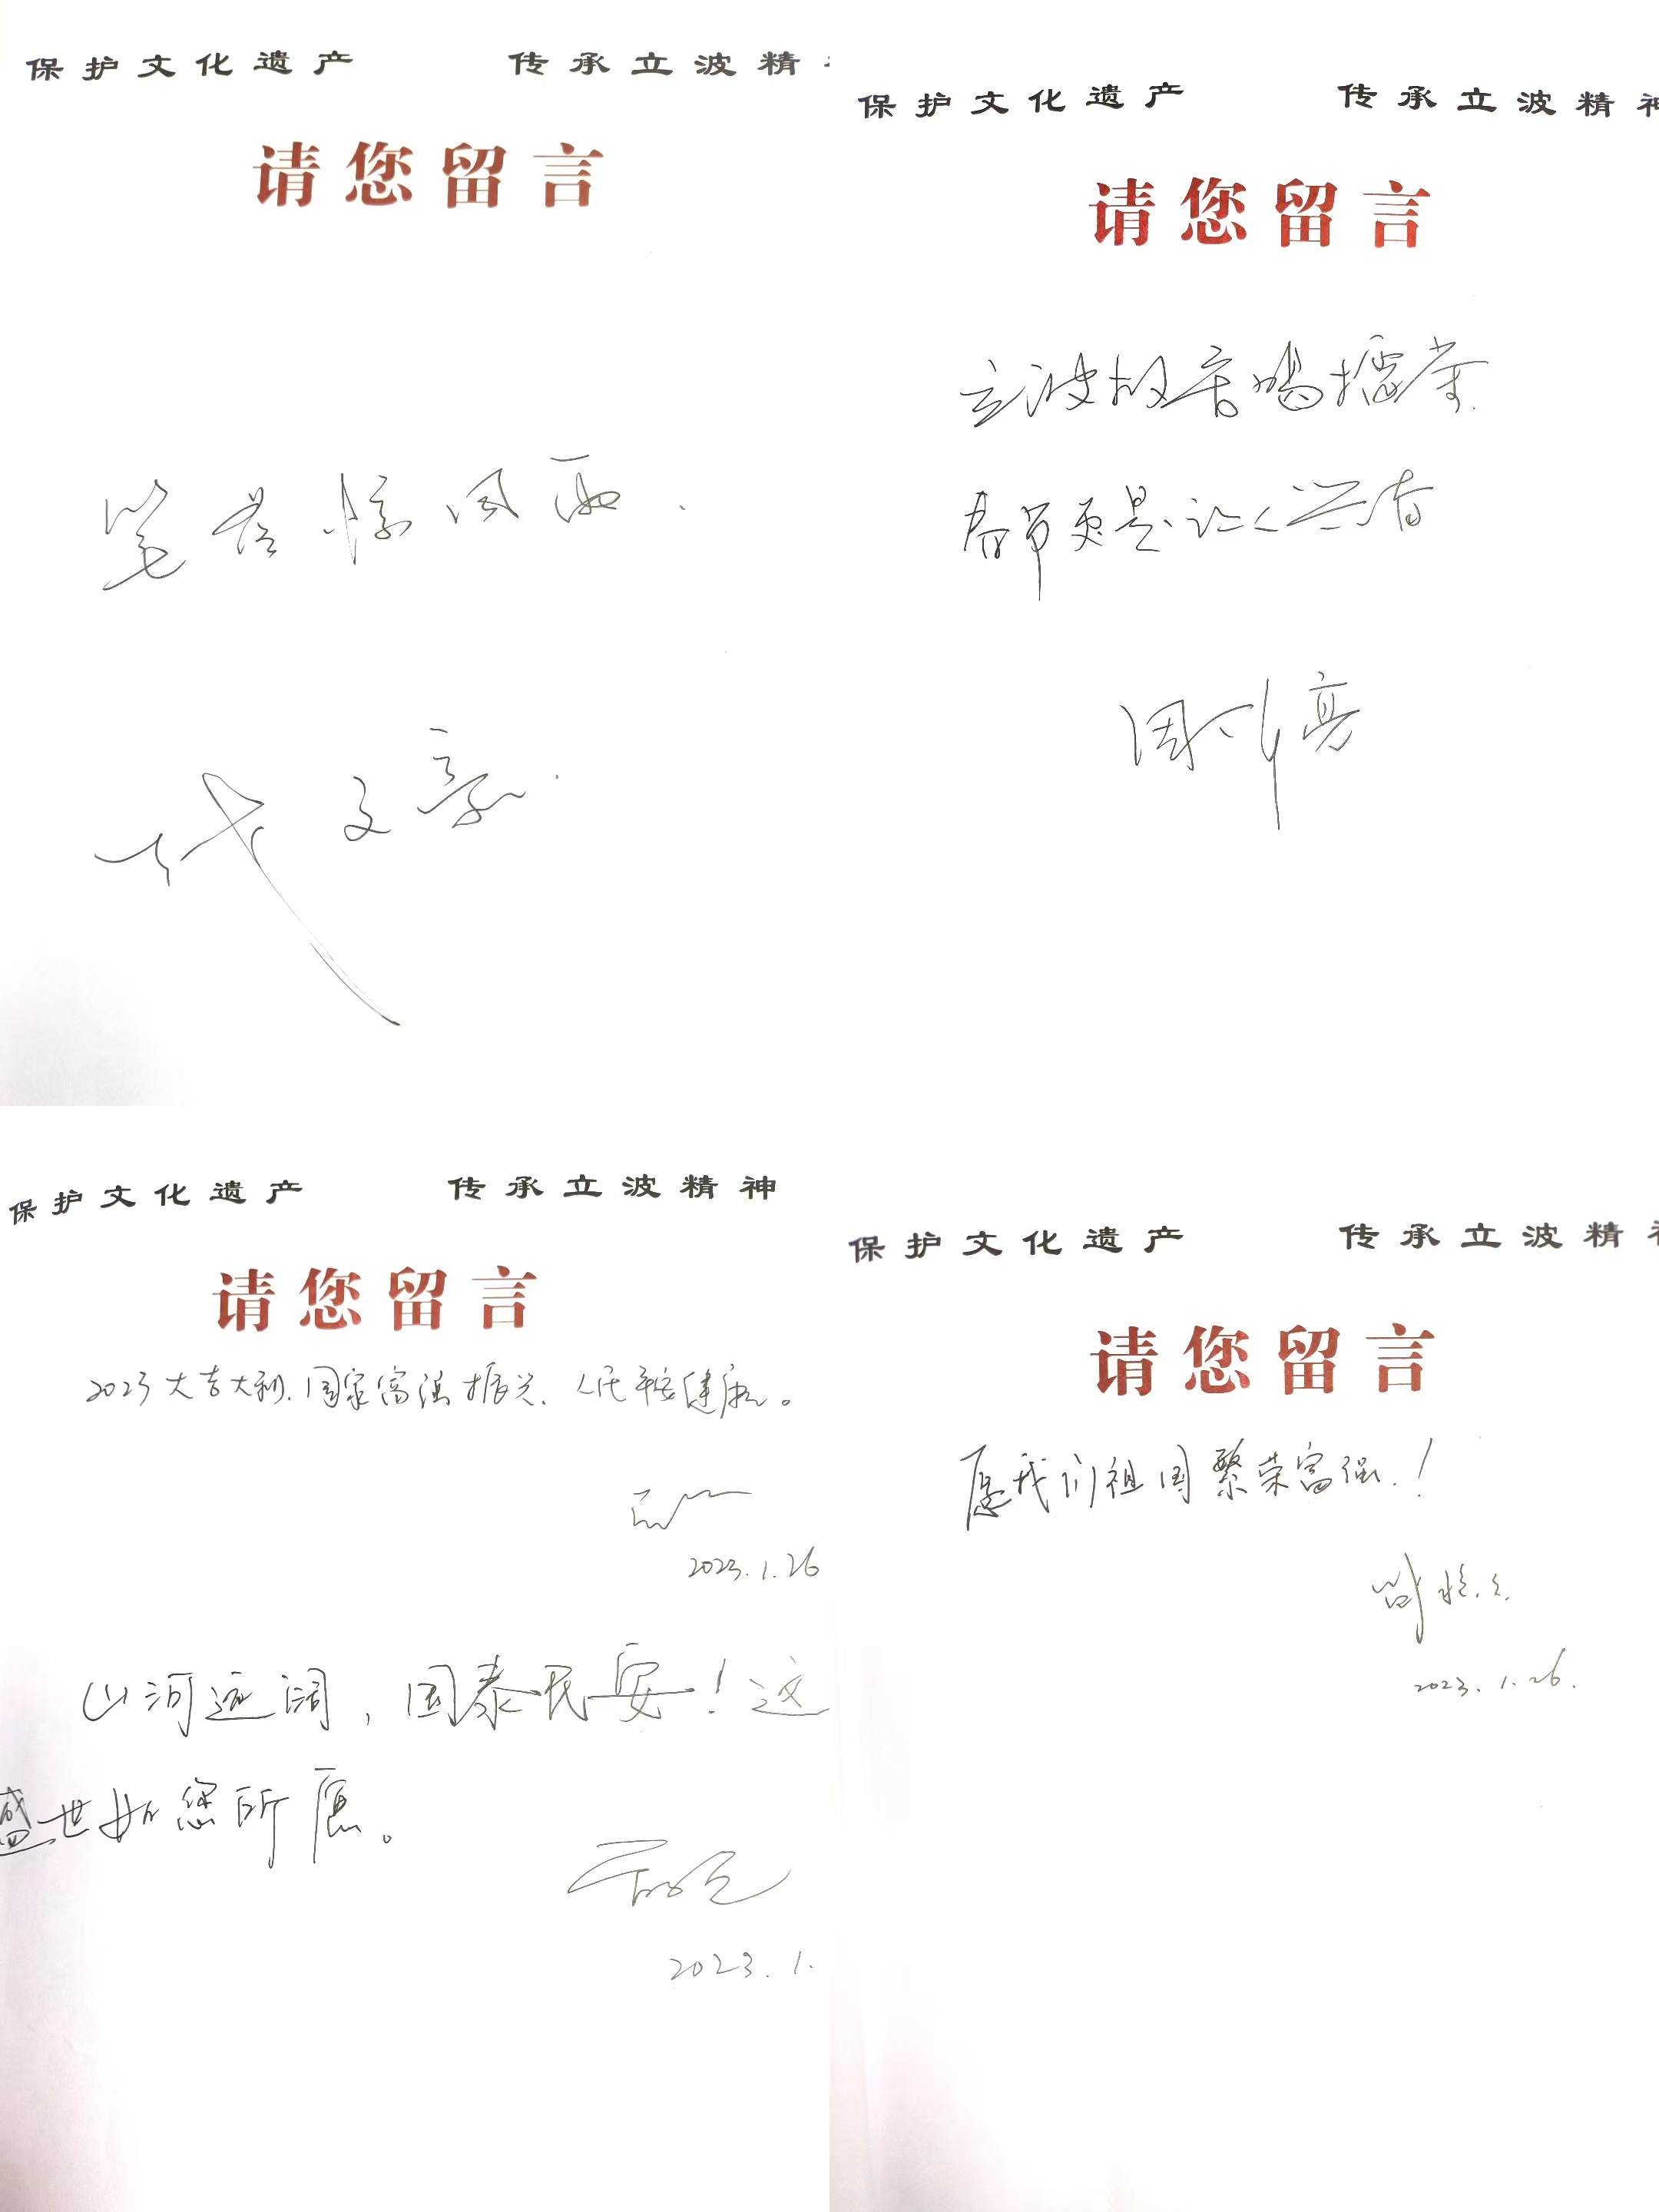 保护文化遗产 传承立波精
请您留言
笔落惊风雨.
一代文章.
保护文化遗产 传承立波精神
请您留言
立波故居喝擂茶
春节更是让人兴奋
周 亮
保护文化遗产 传承立波精神
请您留言
2023大吉大利、国家富强振兴、人民平安健康。
2023.1.26
山河远阔,国泰民安!这
盛世如您所愿。
2023.1.
保护文化遗产 传承立波精
请您留言
愿我们祖国繁荣富强!
2023.1.26.